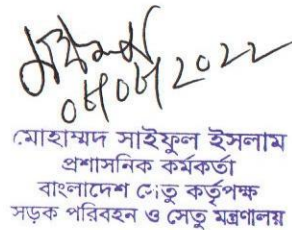 ০৮/০৮/২০২২
মোহাম্মদ সাইফুল ইসলাম
প্রশাসনিক কর্মকর্তা
বাংলাদেশ সেতু কর্তৃপক্ষ
সড়ক পরিবহন ও সেতু মন্ত্রণালয়